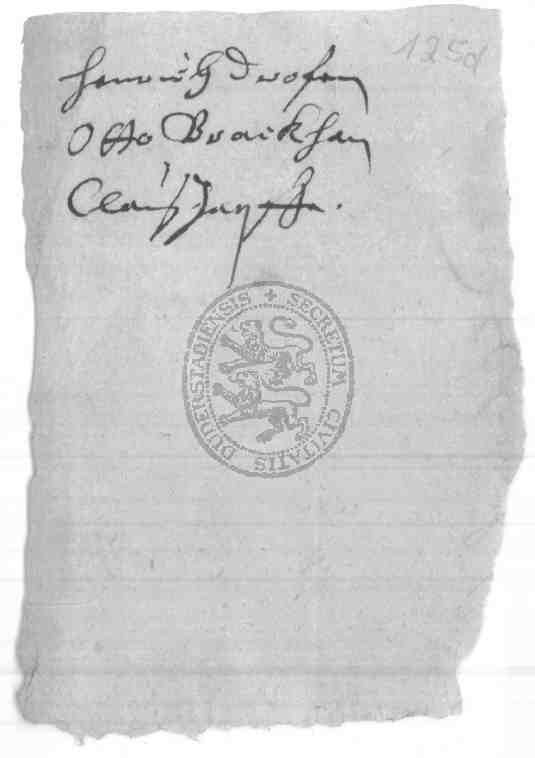 125d
Henrich
Otto Brackhan
Claus
SECRETUM CIVITATIS DUDERSTADIENSIS